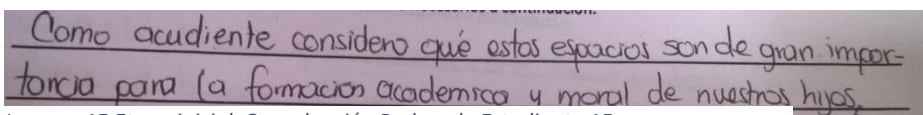 Como acudiente considero qué estos espacios son de gran impor-
tancia para la formacion academica y moral de nuestros hijos.